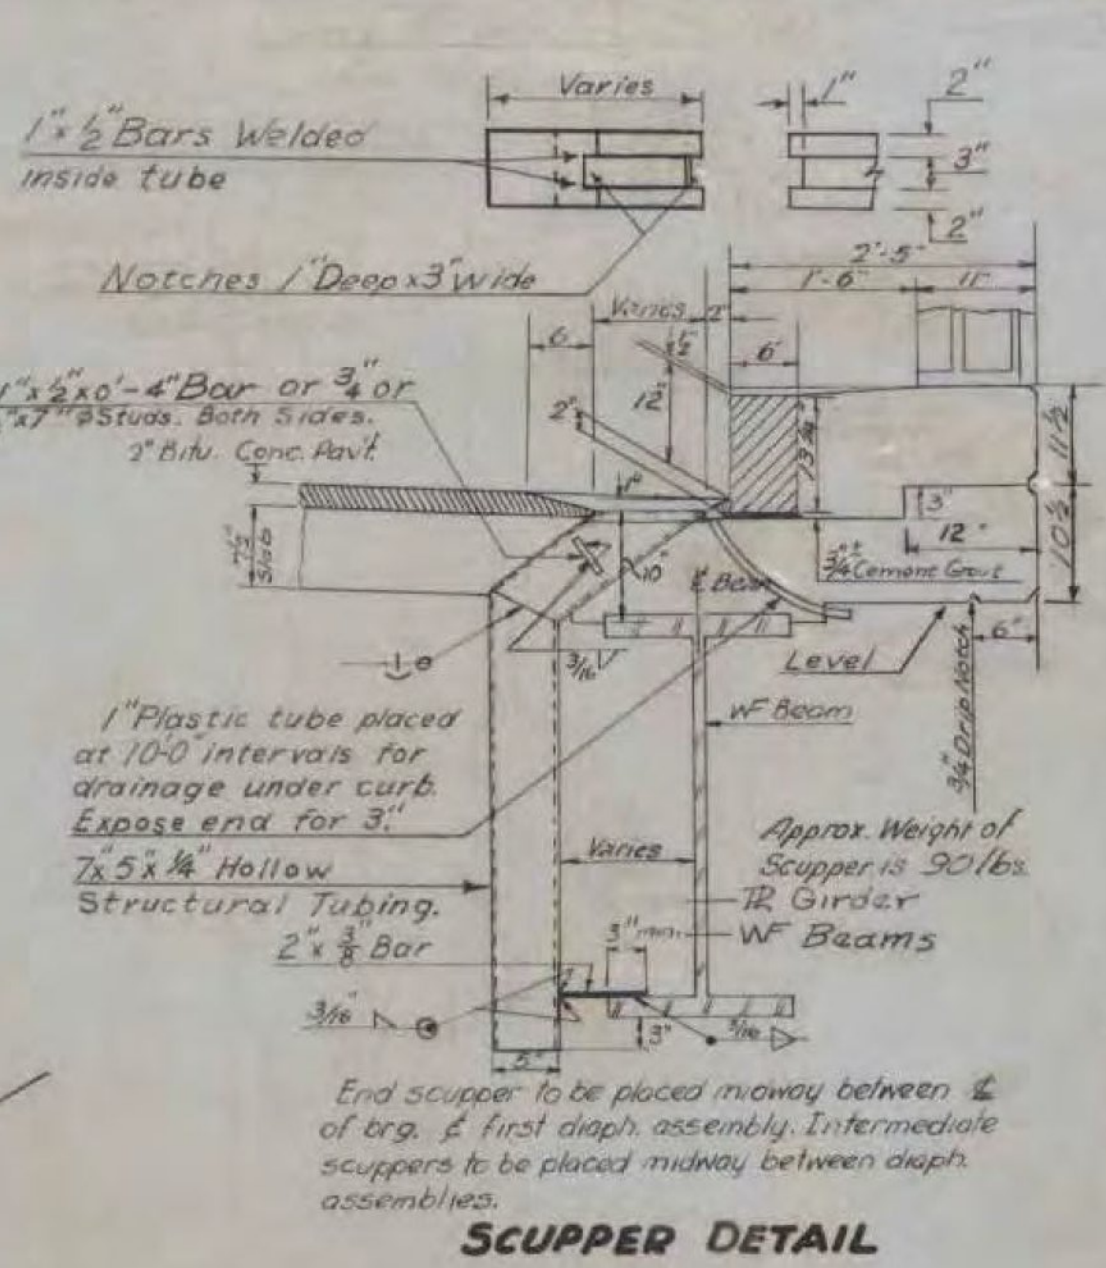 Varies
1"
2"
1"x 1/2" Bars Welded
inside tube
3"
2"
Notches 1" Deep x 3" Wide
2'-5"
1'-6"
11"
Varies
2"
6
1/2"
6"
1"x 1/2"x 0'-4" Bar or 3/4" or
"x7" ø Studs. Both Sides.
2" Bitu. Conc. Pav't.
2"
12"
13 3/4
11 1/2
1"
3"
7 1/2"
Slab
12"
10 1/2
10"
℄ Beam
3/4"± Cement Grout
3/16
Level
6"
3/4" Drip Notch
1" Plastic tube placed
at 10'-0" intervals for
drainage under curb.
Expose end for 3".
WF Beam
7"x 5"x 1/4" Hollow
Structural Tubing.
Varies
Approx. Weight of
Scupper is 90 lbs.
PL Girder
2"x 3/8" Bar
3" min.
WF Beams
3/16"
3"
5/16
5"
End scupper to be placed midway between ℄
of brg. & first diaph. assembly. Intermediate
scuppers to be placed midway between diaph.
assemblies.
SCUPPER DETAIL